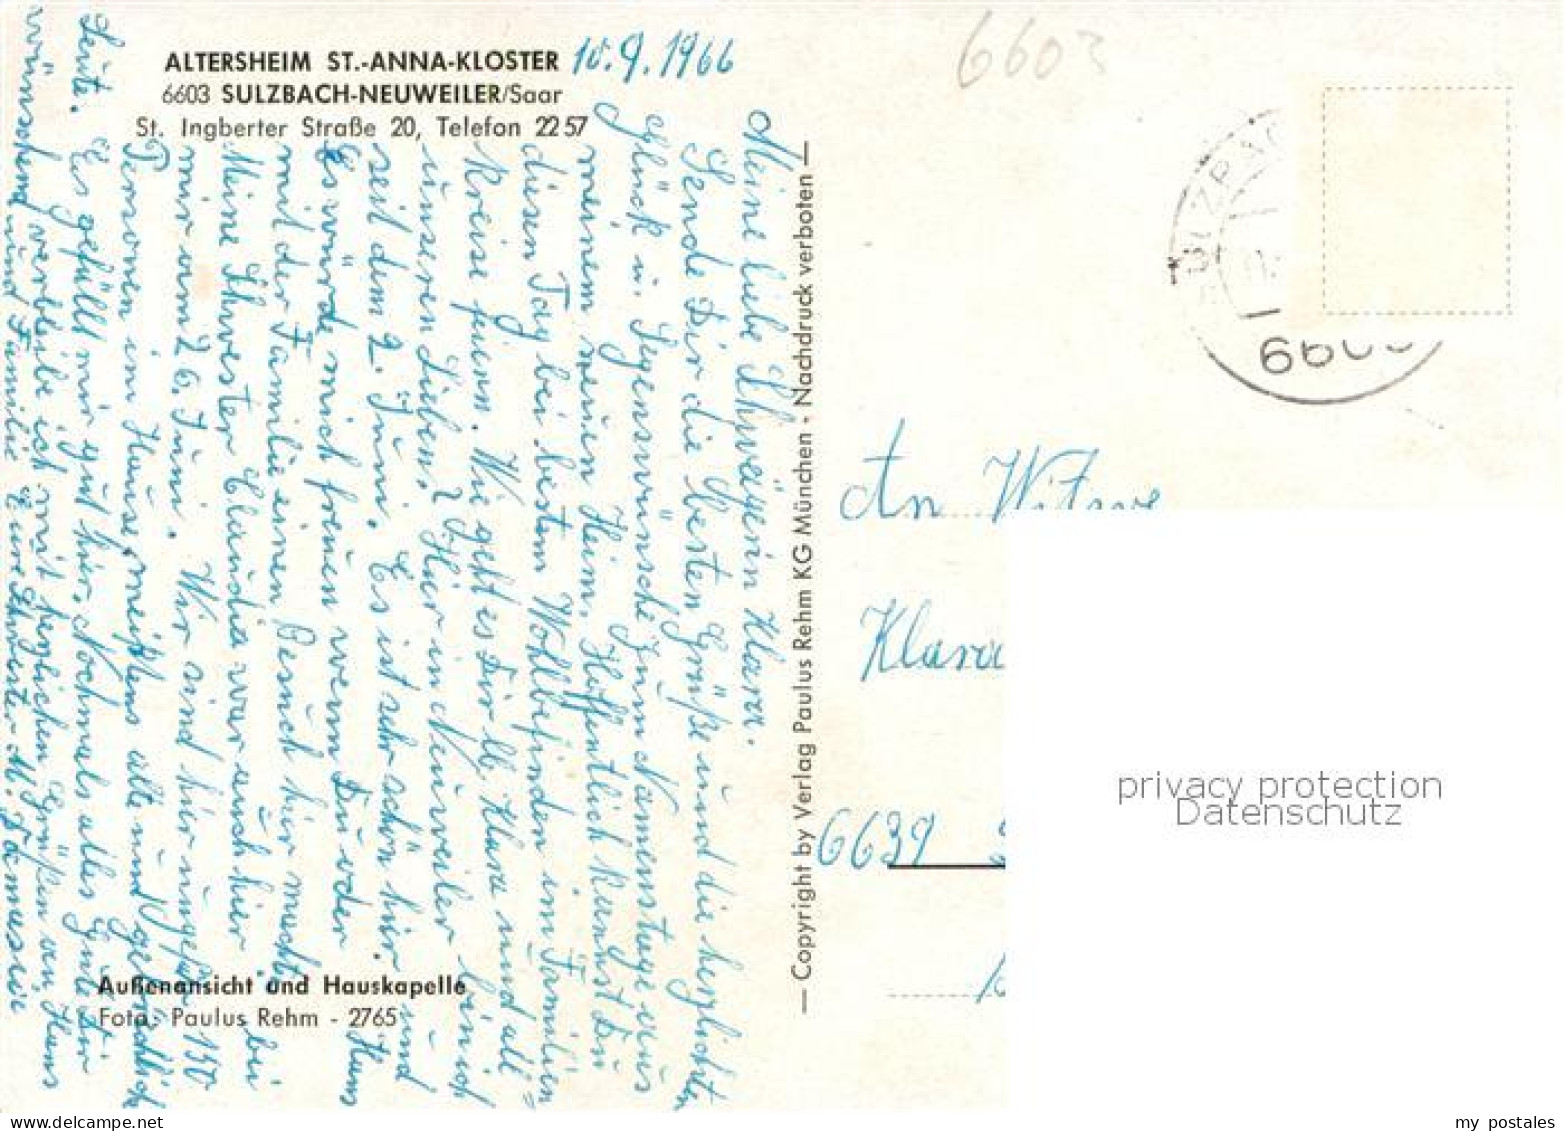 ALTERSHEIM ST.-ANNA-KLOSTER
6603 SULZBACH-NEUWEILER/Saar
St. Ingberter Straße 20, Telefon 2257
10.9.1966
Meine liebe Schwägerin Klara.
Sende Dir die besten Grüße und die herzlichsten
Glück u. Segenswünsche zum Namenstage aus
meinem neuen Heim. Hoffentlich kannst Du
diesen Tag bei bestem Wohlbefinden im Familien=
kreise feiern. Wie geht es Dir lb. Klara und all
unseren Lieben? Hier in Neuweiler bin ich
seit dem 2. Juni. Es ist sehr schön hier und
Es würde mich freuen wenn Du oder Hans
mit der Familie einen Besuch hier mecht.
Meine Schwester Claudia war auch hier bei
mir am 26. Juni. Wir sind hier ungefär 150
Personen im Hause, meistens alte und gebrechliche
Leute. Es gefällt mir gut hier. Nochmals alles Gute Dir
wünschend verbleibe ich mit herzlichen Grüßen an Hans
und Familie Eure Schwester M.
Außenansicht und Hauskapelle
Foto: Paulus Rehm - 2765
— Copyright by Verlag Paulus Rehm KG München - Nachdruck verboten —
6603
SULZBAC
6603
An Witwe
Klara
6639
privacy protection
Datenschutz
my postales